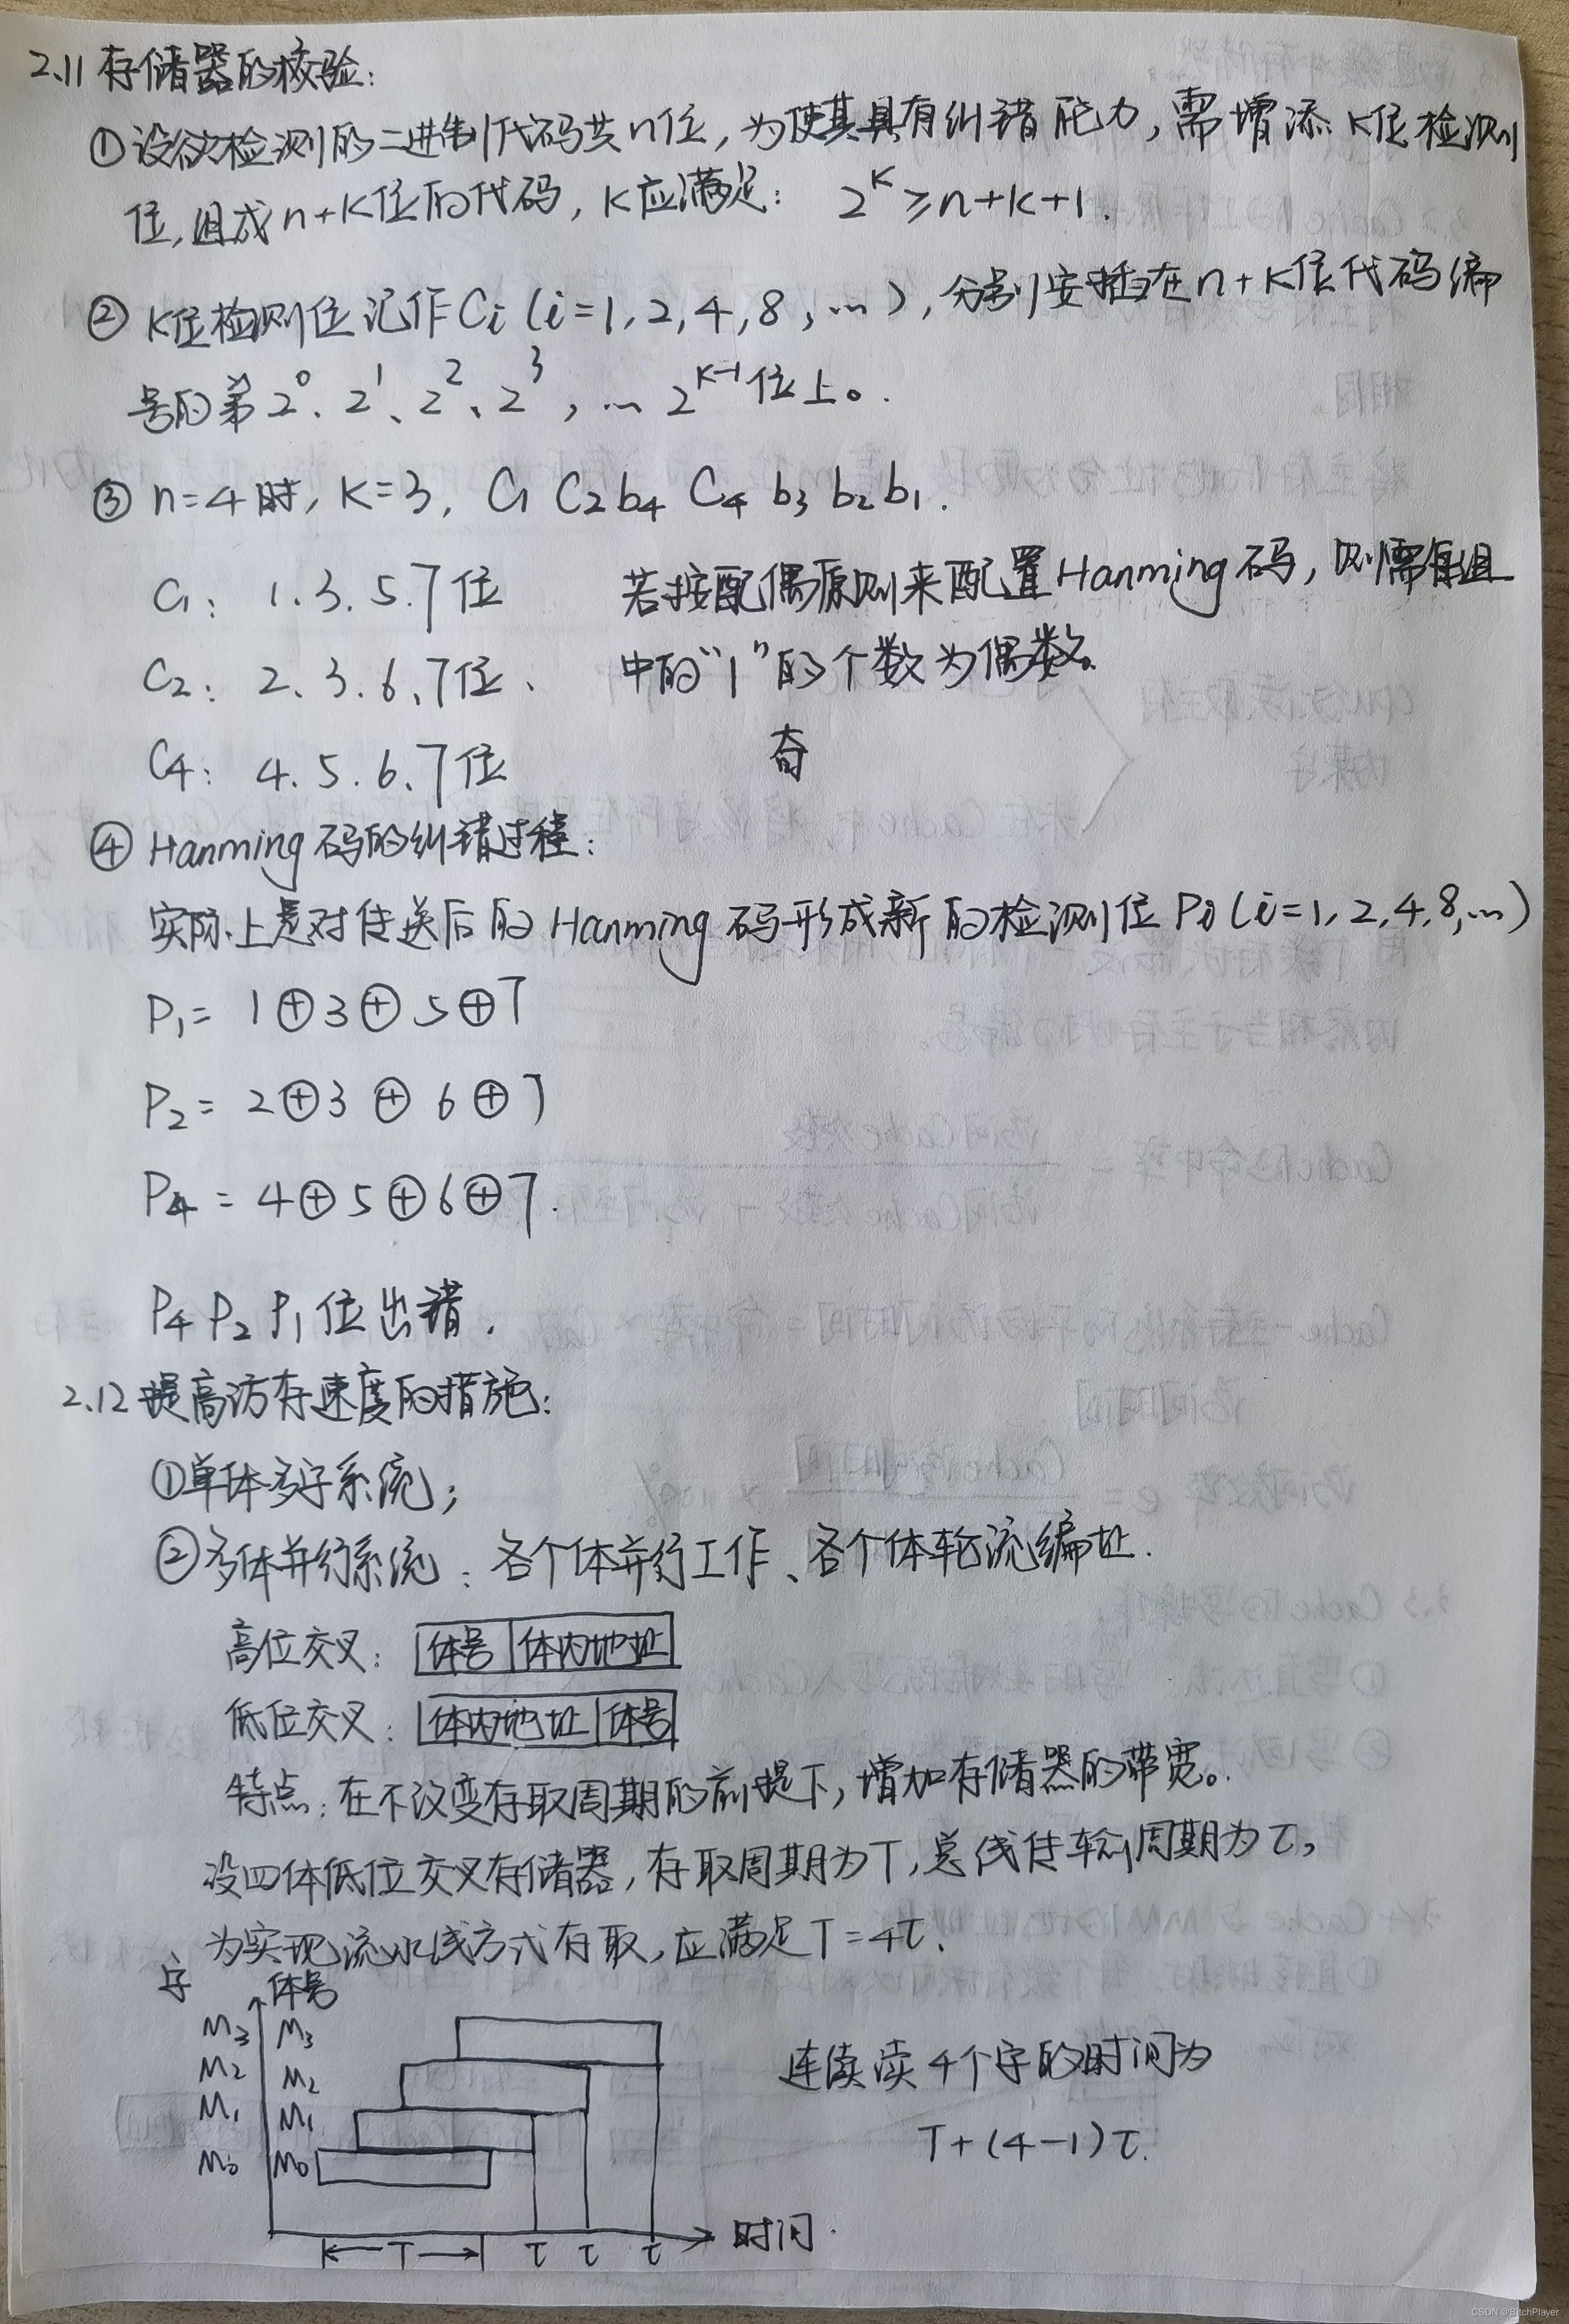 2.11 存储器的校验：
① 设欲检测的二进制代码共n位，为使其具有纠错能力，需增添K位检测
位，组成n+K位的代码，K应满足： 2^K ≥ n+k+1.
② K位检测位记作Ci（i=1，2，4，8，…），分别安插在n+K位代码编
号的第2^0、2^1、2^2、2^3，… 2^{K-1}位上。
③ n=4时，K=3， C1 C2 b4 C4 b3 b2 b1.
C1： 1.3.5.7位 若按配偶原则来配置Hanming码，则需每组
C2： 2、3.6、7位、 中的“1”的个数为偶数。
C4： 4.5.6.7位 奇
④ Hanming码的纠错过程：
实际上是对传送后的Hanming码形成新的检测位Pi（i=1，2，4，8，…）
P1= 1⊕3⊕5⊕7
P2= 2⊕3⊕6⊕7
P4 = 4⊕5⊕6⊕7.
P4 P2 P1位出错.
2.12 提高访存速度的措施：
①单体多字系统；
②多体并行系统：各个体并行工作、各个体轮流编址.
高位交叉： 体号 体内地址
低位交叉： 体内地址 体号
特点：在不改变存取周期的前提下，增加存储器的带宽。
设四体低位交叉存储器，存取周期为T，总线传输周期为τ，
为实现流水线方式存取，应满足T=4τ.
字 体号
M3 M3
M2 M2
M1 M1
M0 M0
连续读4个字的时间为
T+(4-1)τ.
T τ τ τ 时间.
CSDN @BitchPlayer